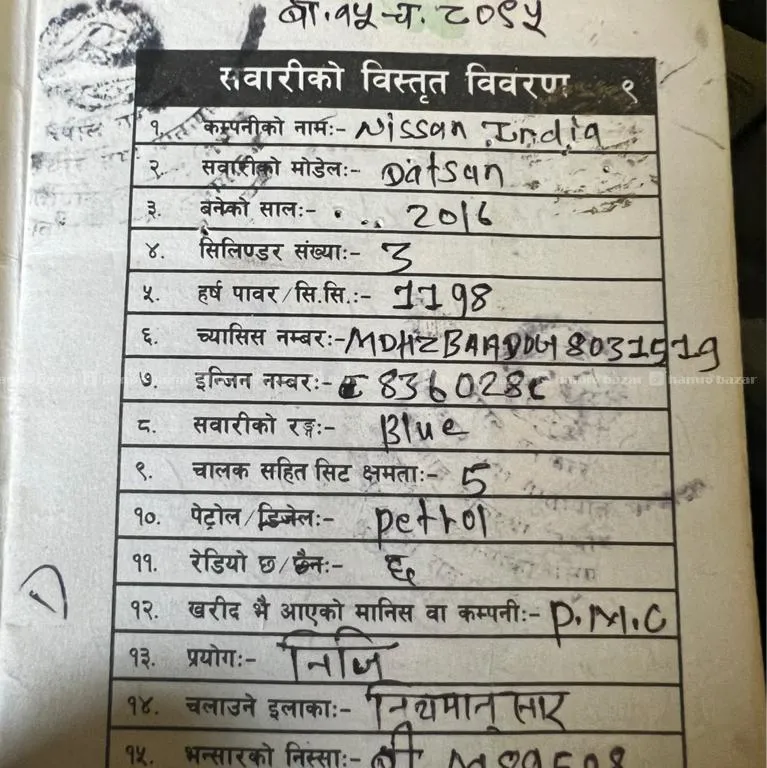 बा.१५ च. ८०९५
सवारीको विस्तृत विवरण ९
१. कम्पनीको नामः- Nissan India
२. सवारीको मोडेलः- Datsun
३. बनेको सालः- 2016
४. सिलिण्डर संख्याः- 3
५. हर्ष पावर/सि.सि.ः- 1198
६. च्यासिस नम्बरः-
७. इन्जिन नम्बरः-
hamro bazar
८. सवारीको रङ्गः- Blue
९. चालक सहित सिट क्षमताः- 5
१०. पेट्रोल/डिजेलः- petrol
११. रेडियो छ/छैनः- छ
१२. खरीद भै आएको मानिस वा कम्पनीः- P.M.C
१३. प्रयोगः- निजि
१४. चलाउने इलाकाः- नियमानुसार
१५. भन्सारको निस्साः-